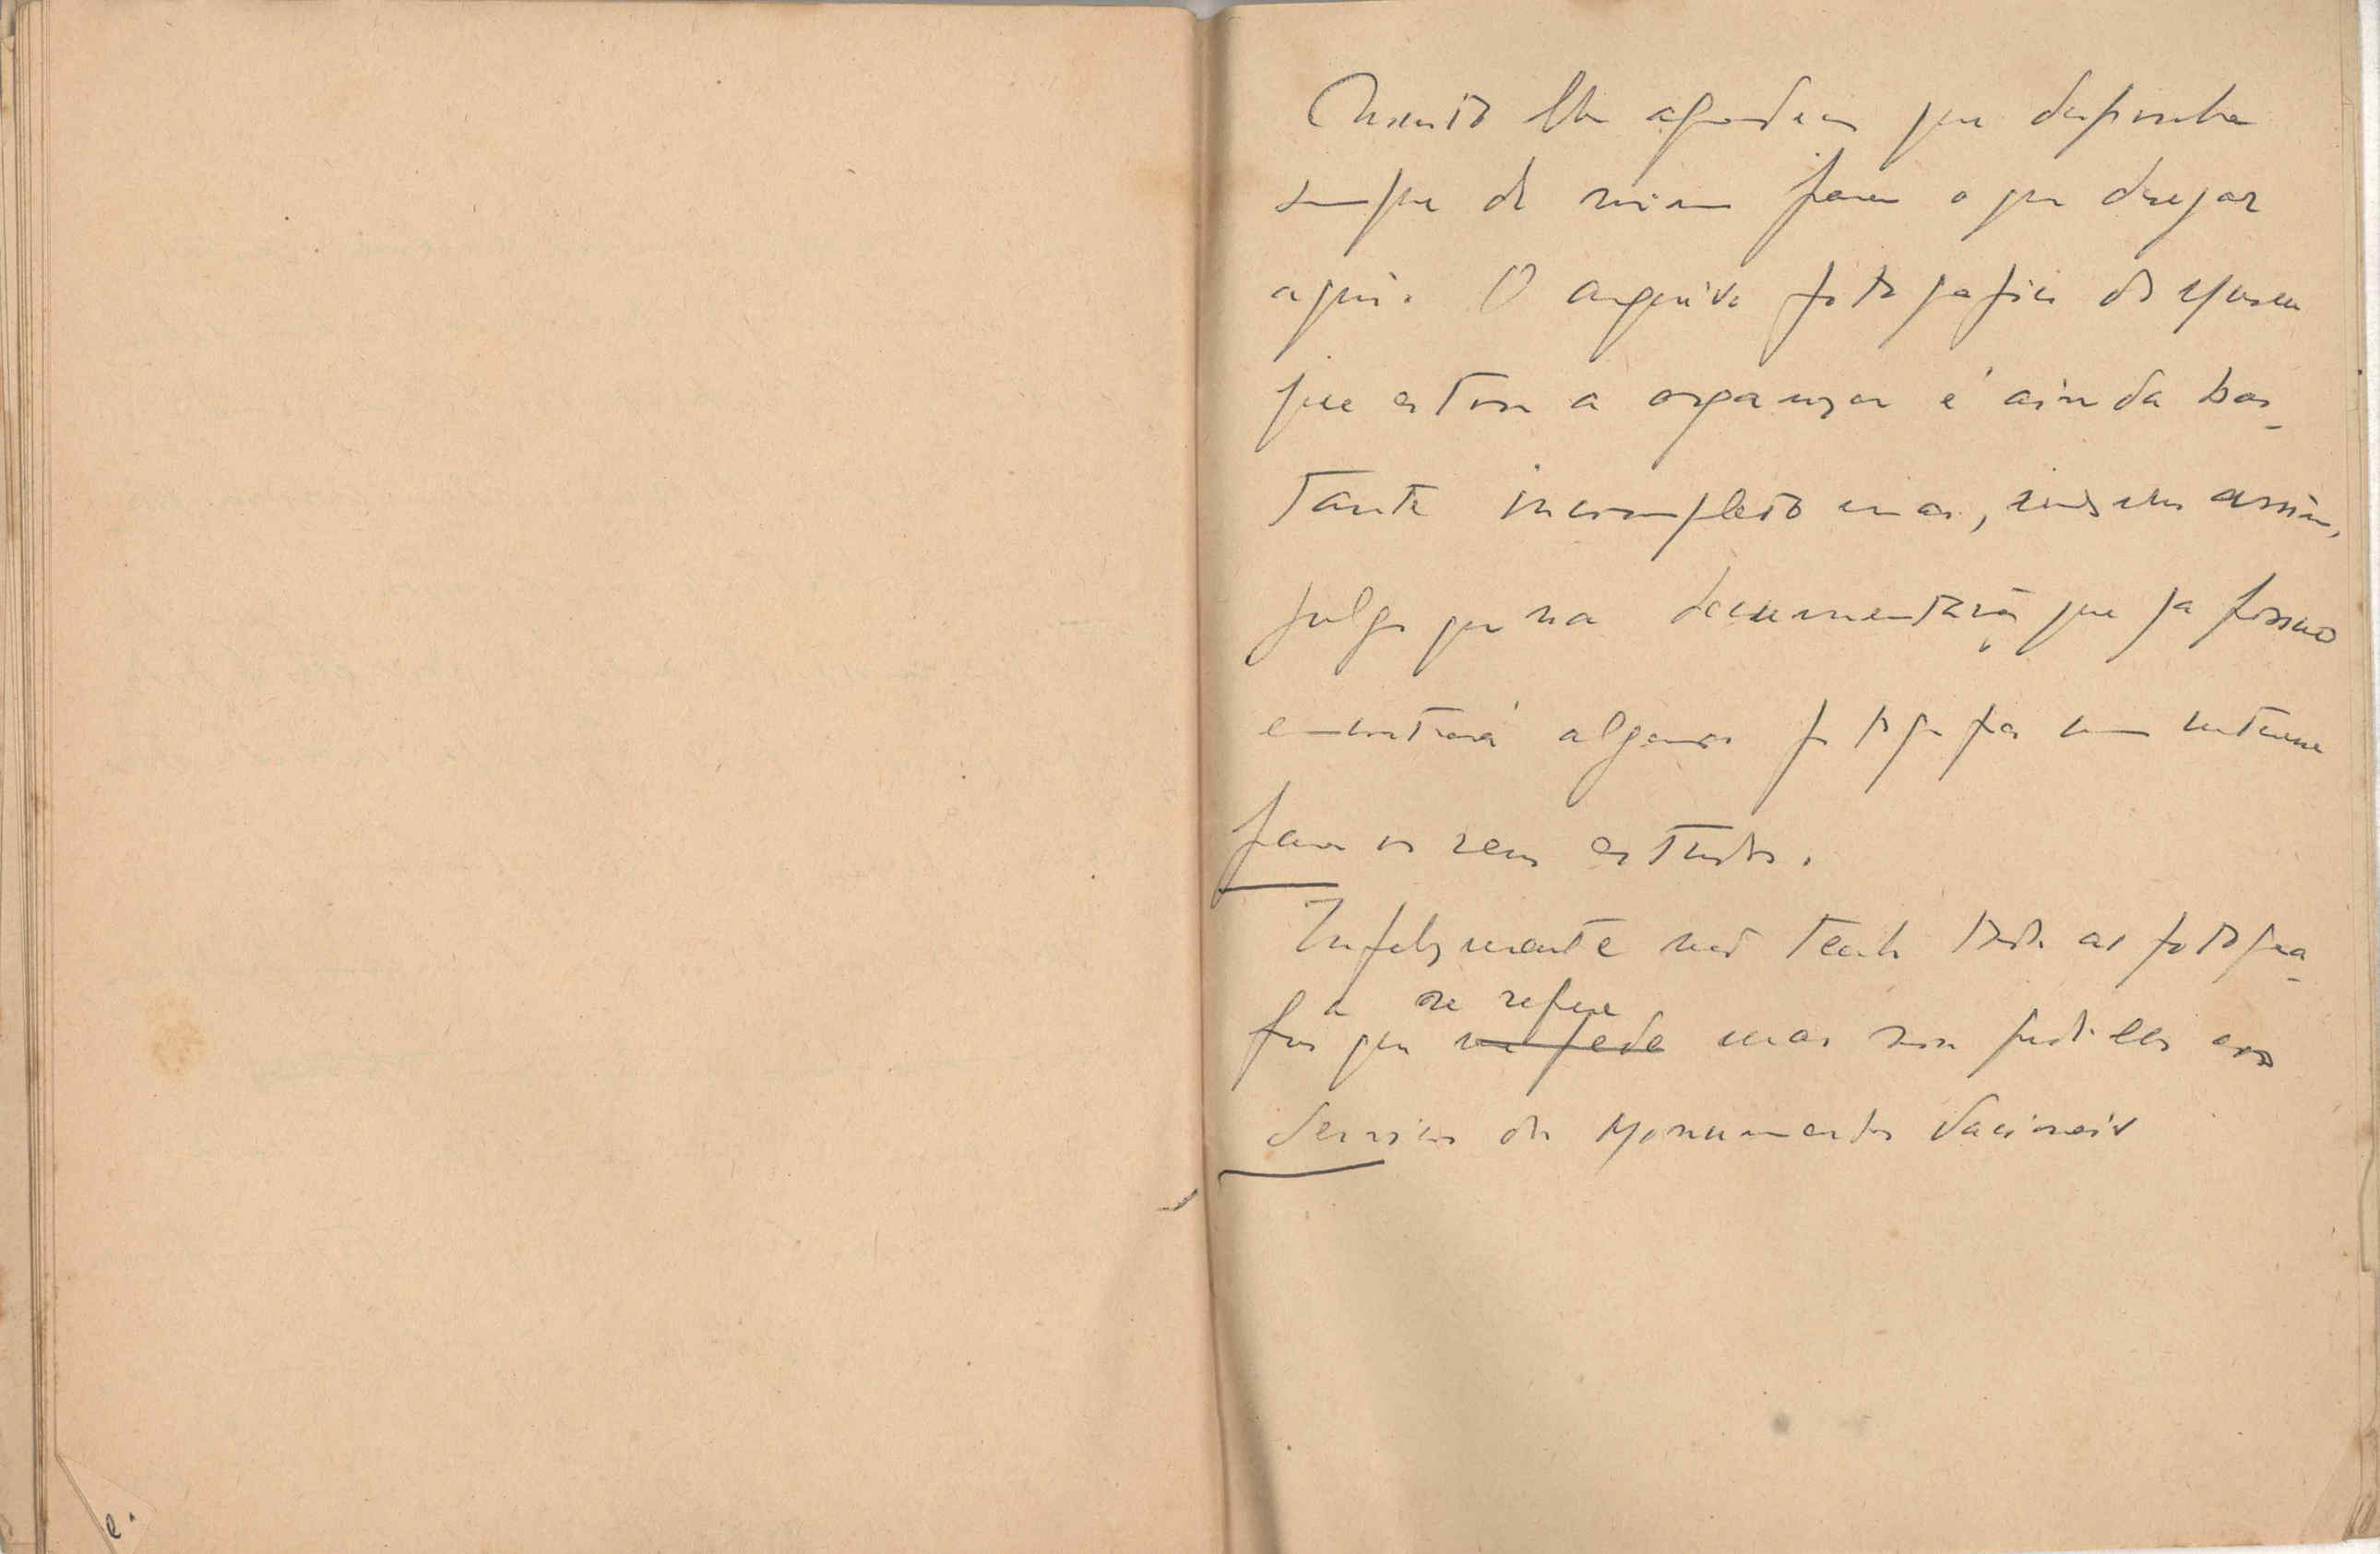 Muito lhe agradeço que disponha
sempre de mim para o que desejar
aqui. O arquivo fotografico do Museu
que estou a organizar é ainda bas-
tante incompleto mas, mesmo assim,
julgo que na documentação que já possuo
encontrará algumas fotografias com interesse
para os seus estudos.
Infelizmente não tenho todas as fotogra-
a se refere
fias que me pede mas vou pedi-las aos
Serviços dos Monumentos Nacionais
e.